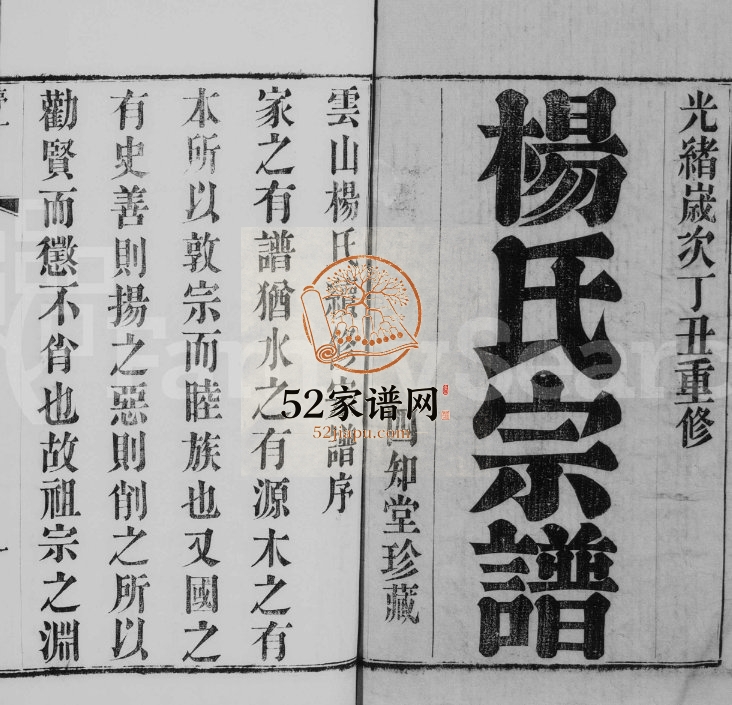 光緒歲次丁丑重修
楊氏宗譜
知堂珍藏
雲山楊氏續修宗譜序
家之有譜猶水之有源木之有
本所以敦宗而睦族也又國之
有史善則揚之惡則削之所以
勸賢而懲不肖也故祖宗之淵
52家谱网
52jiapu.com
FamilySearch